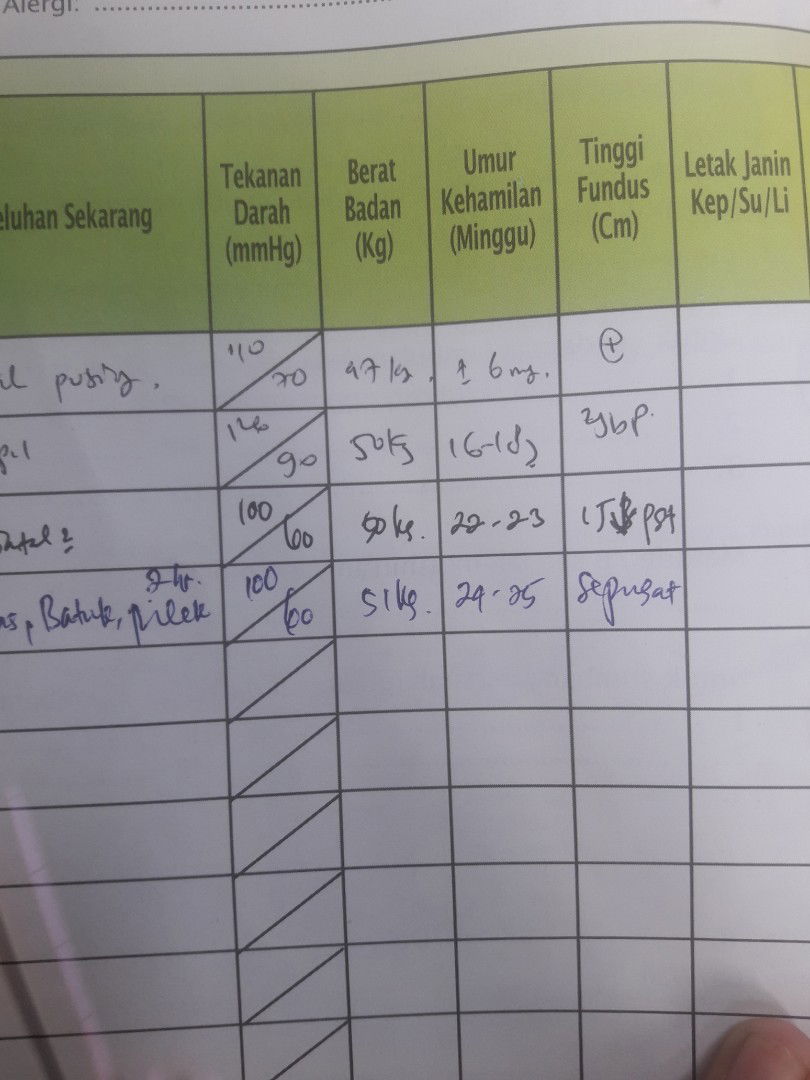 Alergi: ........................................
eluhan Sekarang
Tekanan
Darah
(mmHg)
Berat
Badan
(Kg)
Umur
Kehamilan
(Minggu)
Tinggi
Fundus
(Cm)
Letak Janin
Kep/Su/Li
pusing. 110/70 47 kg. ± 6 mg. ⊕
90 50kg 16-18
100/60 50 kg. 22-23 pst
2 hr.
Batuk, pilek 100/60 51 kg. 24-25 Sepusat